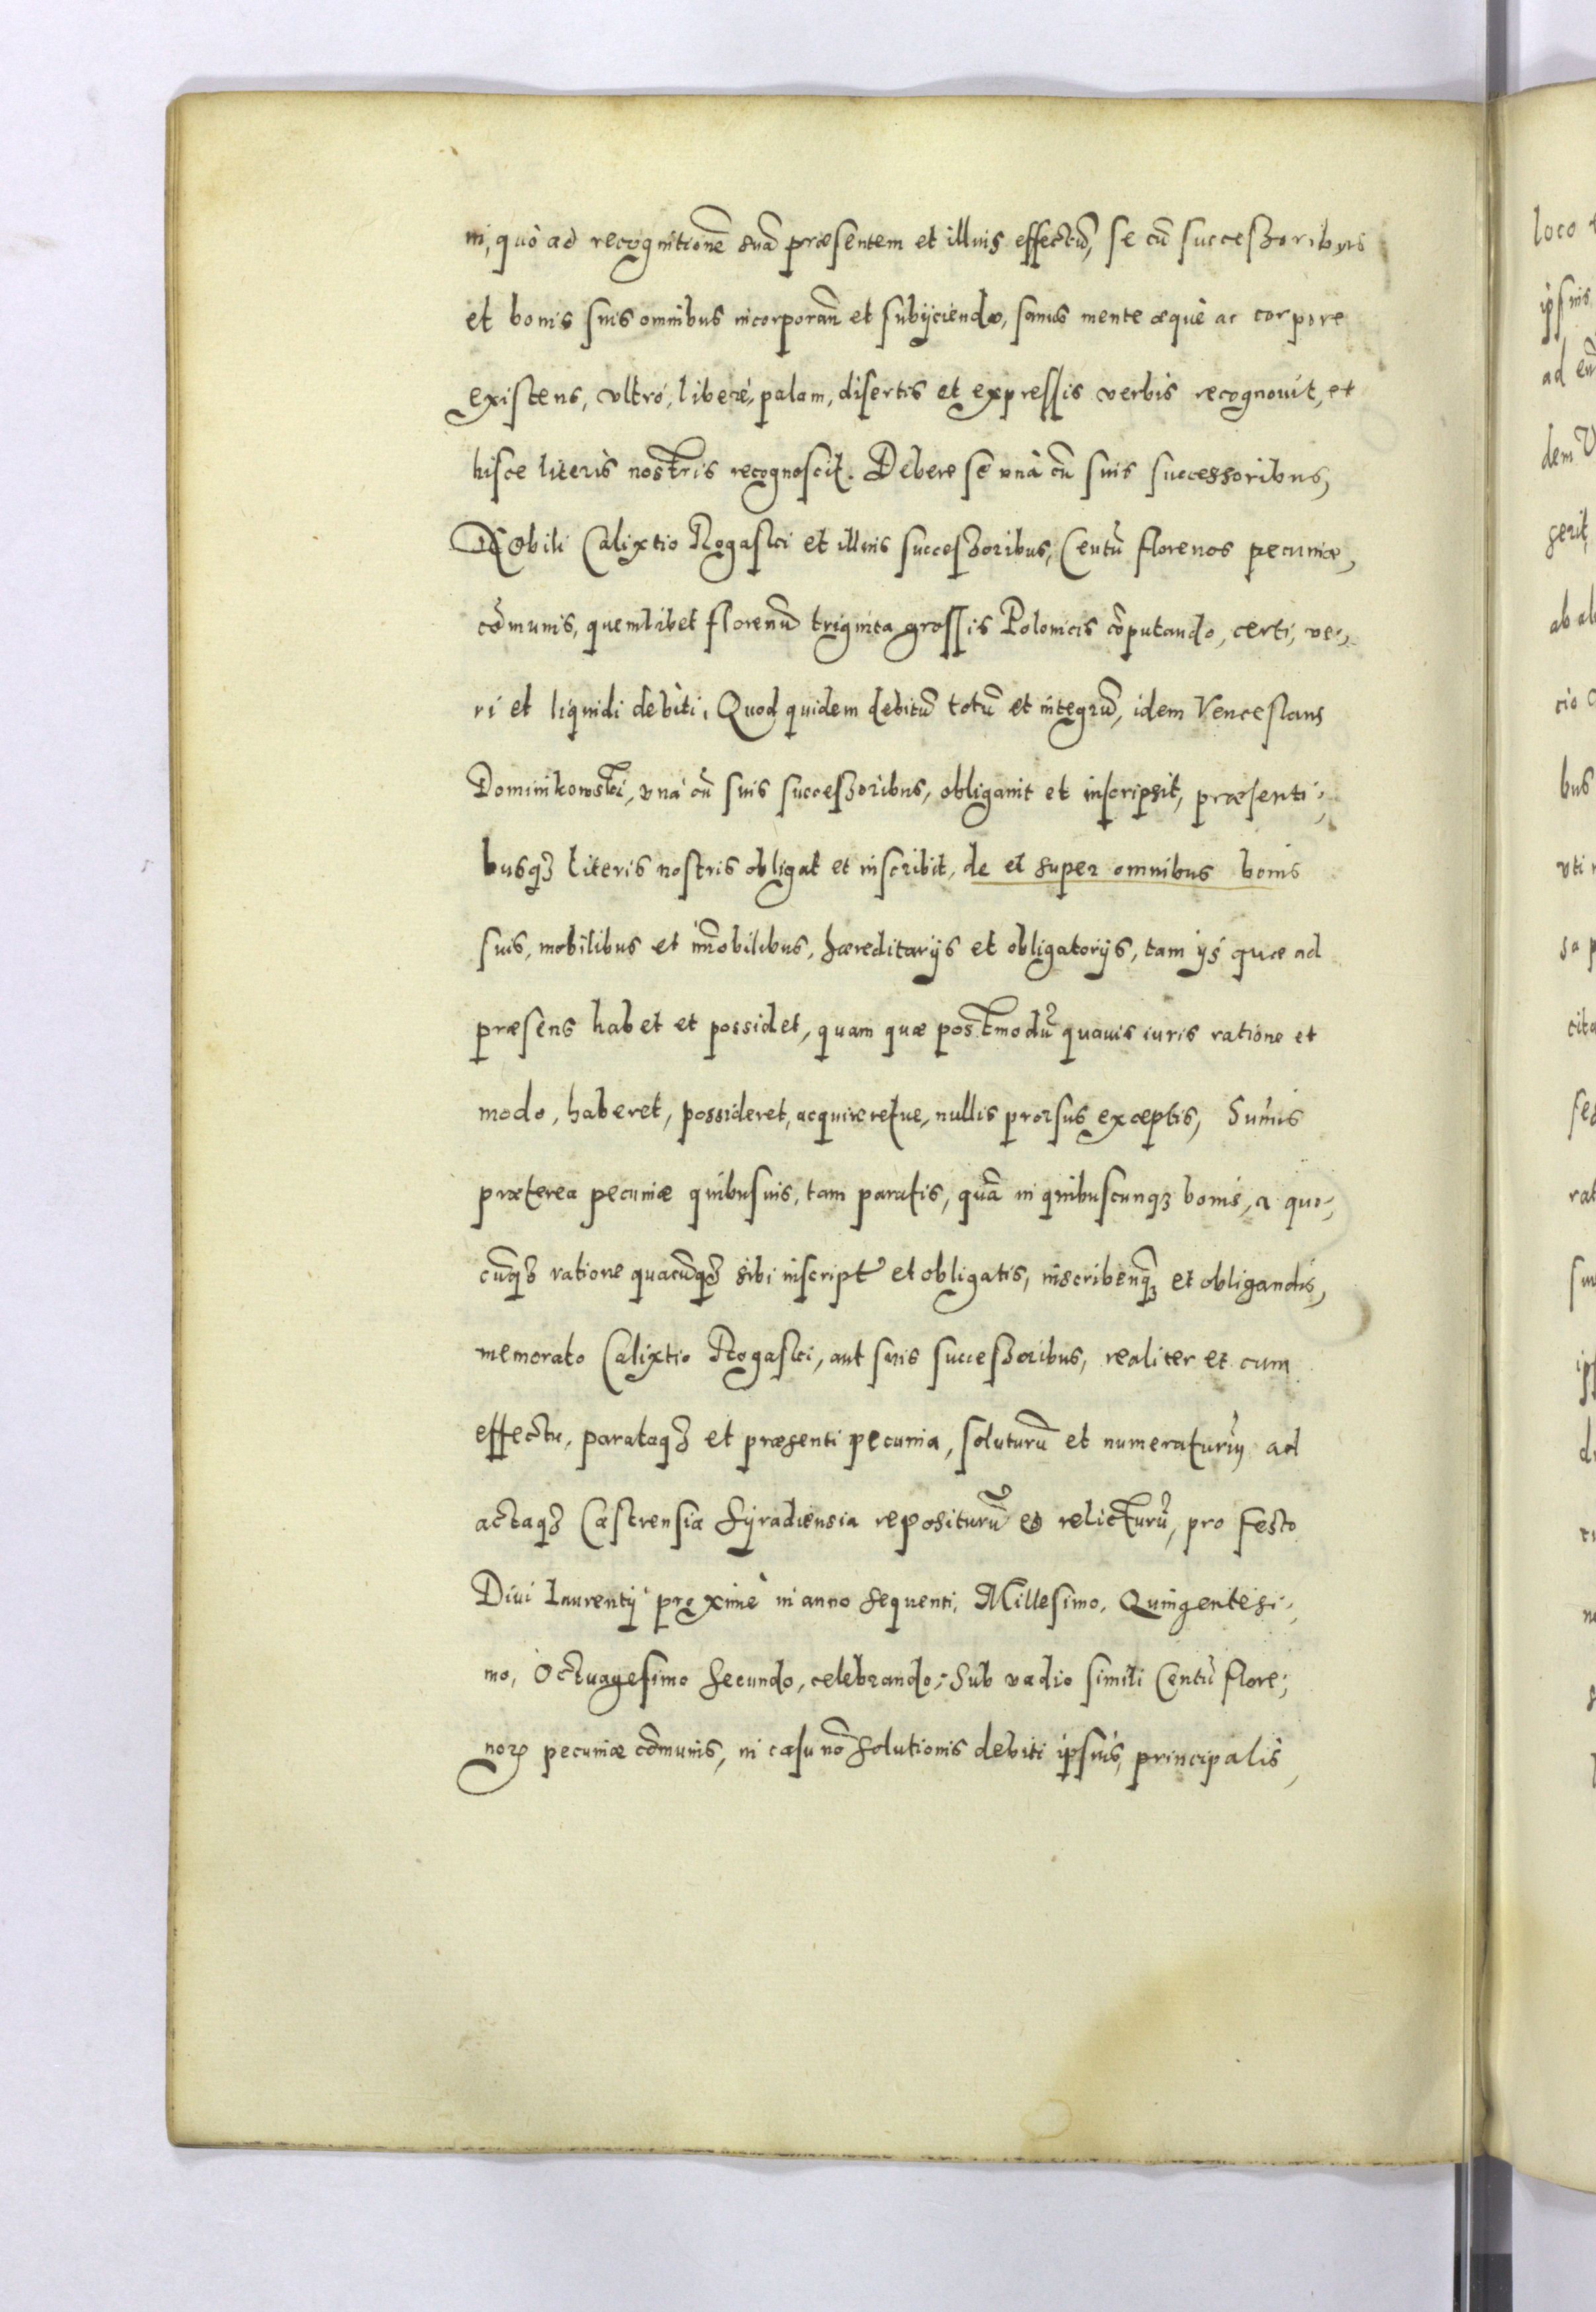 ni, quò ad recognitionē suā præsentem et illius effectū, se cū successoribus
et bonis suis omnibus incorporan̄ et subijciendo, sanus mente æquè ac corpore
existens, vltrò, liberè, palam, disertis et expressis verbis recognouit, et
hisce literis nostris recognoscit. Debere se vnà cū suis successoribus,
Nobili Calixtio Rogaski et illius successoribus, Centū florenos pecuniæ,
cōmunis, quemlibet florenū triginta grossis Polonicis cōputando, certi, ve-
ri et liquidi debiti, Quod quidem debitū totū et integrū, idem Venceslaus
Dominikowski, vnà cū suis successoribus, obligauit et inscripsit, præsenti-
busqꝫ literis nostris obligat et inscribit, de et super omnibus bonis
suis, mobilibus et im̄obilibus, hæreditarijs et obligatorijs, tam ijs quæ ad
præsens habet et possidet, quam quæ postmodū quauis iuris ratione et
modo, haberet, possideret, acquireretue, nullis prorsus exceptis, Sum̄is
præterea pecuniæ quibusuis, tam paratis, quā in quibuscunqꝫ bonis, a quo-
cūqꝫ ratione quacūqꝫ sibi inscript et obligatis, inscribenqꝫ et obligandis,
memorato Calixtio Rogaski, aut suis successoribus, realiter et cum
effectu, parataqꝫ et præsenti pecunia, soluturū et numeraturū ad
actaqꝫ Castrensia Syradiensia repositurū et relicturū, pro festo
Diui Laurentij proximè in anno sequenti, Millesimo, Quingentesi-
mo, Octuagesimo secundo, celebrando; Sub vadio simili Centū flore-
noꝝ pecuniæ cōmunis, in casu nō solutionis debiti ipsius, principalis,